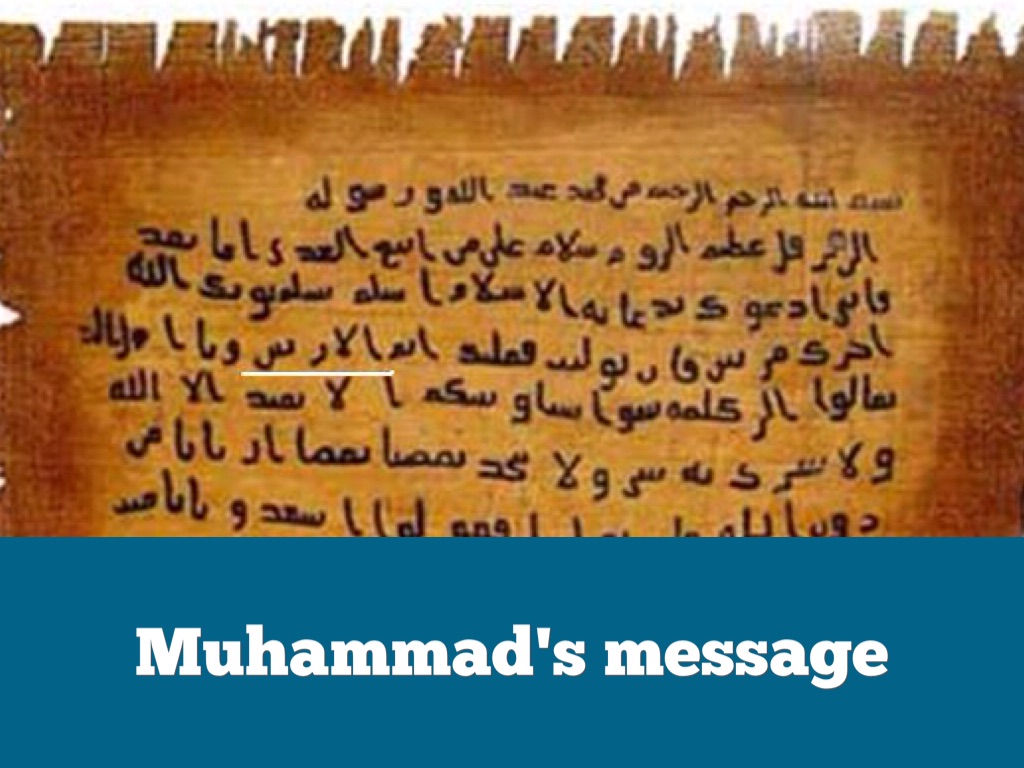 بسم الله الرحمن الرحيم من محمد عبد الله و رسوله
الى هرقل عظيم الروم سلام على من اتبع الهدى اما بعد
فانى ادعوك بدعاية الاسلام اسلم تسلم يوتك الله
اجرك مرتين فان توليت فعليك اثم الاريسين ويا اهل
تعالوا الى كلمة سوا بيننا وبينكم ا لا نعبد الا الله
ولا نشرك به شي ولا يتخذ بعضنا بعضا اربابا من
دون الله
Muhammad's message